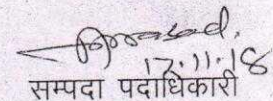 17.11.18
सम्पदा पदाधिकारी